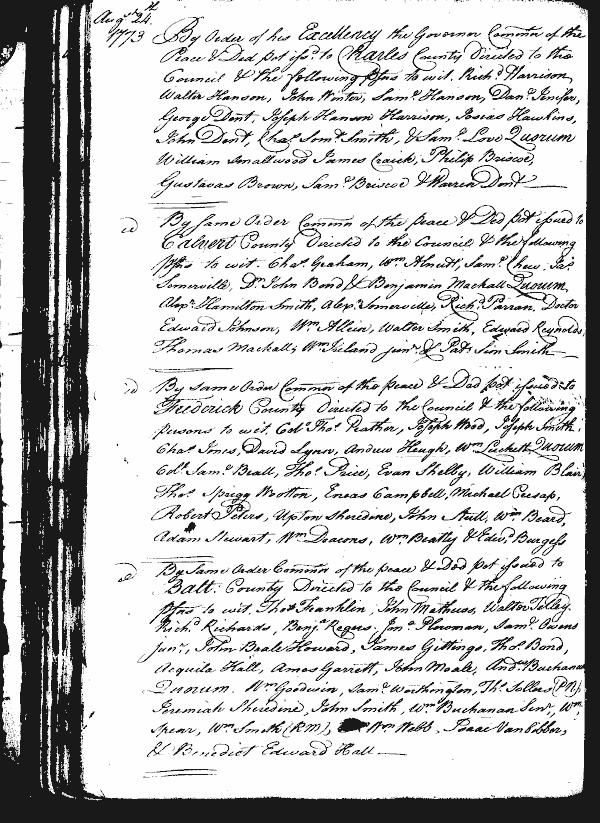 Augt. 24th.
1773
By Order of his Excellency the Governor Common of the
Peace & Ded pot issd. to Charles County Directed to the
Council & the following psns to wit. Richd. Harrison,
Walter Hanson, John Winter, Saml. Hanson, Danl. Jenifer,
George Dent, Joseph Hanson Harrison, Josias Hawkins,
John Dent, Chas. Somt. Smith, & Saml. Love Quorum
William Smallwood James Craick, Philip Briscoe,
Gustavus Brown, Saml. Briscoe & Warren Dent
id
By Same Order Common of the peace & Ded pot issued to
Calvert County Directed to the Council & the following
psns to wit. Chas. Graham, Wm. Alnutt, Saml. Chew. Jas.
Somerville, Dr. John Bond & Benjamin Mackall Quorum,
Alexr. Hamilton Smith, Alexr. Somerville, Richd. Parran, Doctor
Edward Johnson, Wm. Allein, Walter Smith, Edward Reynolds,
Thomas Mackall, Wm. Ireland junr. & Patk. Sim Smith
id
By same Order Common of the peace & Ded pot issued to
Frederick County directed to the Council & the following
persons to wit. Colo. Thos. Prather, Joseph Wood, Joseph Smith,
Chas. Jones, David Lynn, Andrew Heugh, Wm. Luckett Quorum
Colo. Saml. Beall, Thos. Price, Evan Shelby, William Blair,
Thos. Sprigg Wootton, Eneas Campbell, Michael Cresap,
Robert Peters, Upton Sheredine, John Stull, Wm. Beard,
Adam Stewart, Wm. Deacons, Wm. Beatty & Edwd. Burgess
id
By Same Order Common of the peace & Ded pot issued to
Balt. County Directed to the Council & the following
psns to wit. Thos. Franklin, John Mathews, Walter Tolley,
Richd. Richards, Benj. Rogers. Jona. Plowman, Saml. Owens
junr., John Beale Howard, James Gittings, Thos. Bond,
Acquila Hall, Amos Garrett, John Moale, Andw. Buchanan
Quorum. Wm. Goodwin, Saml. Worthington, Thos. Sollers
Jeremiah Sheredine, John Smith, Wm. Buchanan Senr, Wm.
Spear, Wm. Smith (RM), Wm. Webb, Isaac Vanbibber,
& Benedict Edward Hall